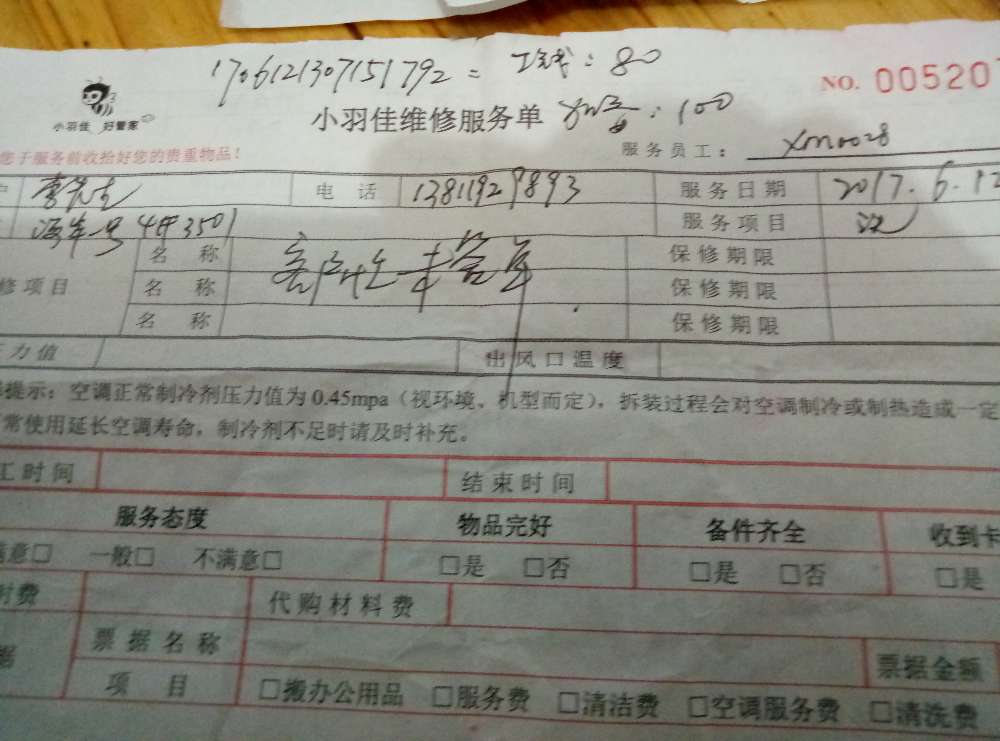 170612130715179 2 = : 80
NO. 005207
小羽佳 好管家
小羽佳维修服务单 : 100
您于服务前收拾好您的贵重物品!
服务员工: XM0028
户 李先生 电 话 13811929893 服务日期 2017.6.12
号 4 3501 服务项目
修项目 名 称 保修期限
名 称 保修期限
名 称 保修期限
压力值 出风口温度
提示:空调正常制冷剂压力值为0.45mpa(视环境、机型而定),拆装过程会对空调制冷或制热造成一定
常使用延长空调寿命,制冷剂不足时请及时补充。
工时间 结束时间
服务态度 物品完好 备件齐全 收到卡
满意□ 一般□ 不满意□ □是 □否 □是 □否 □是
时费 代购材料费
据 票据名称 票据金额
项 目 □搬办公用品 □服务费 □清洁费 □空调服务费 □清洗费